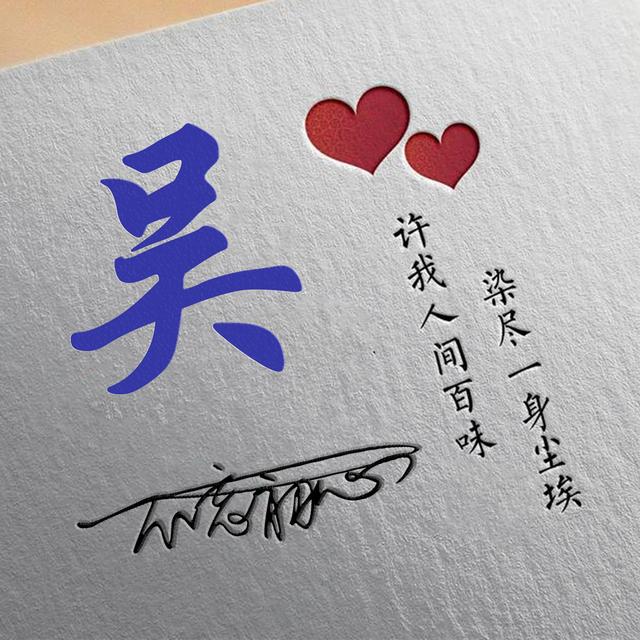 吴
许我人间百味
染尽一身尘埃